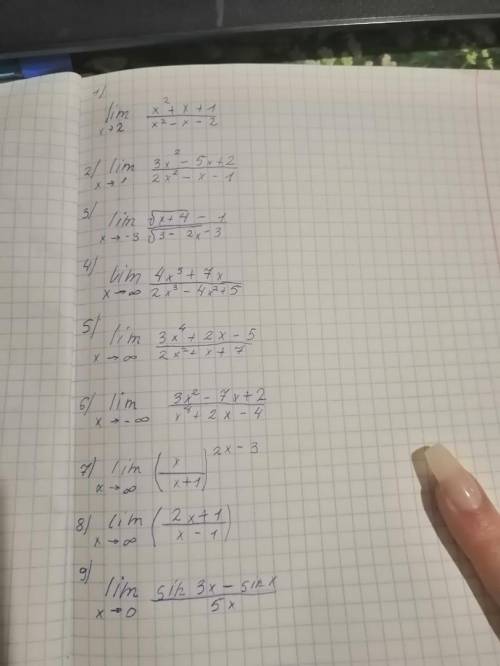 1) lim x→2 (x² + x + 1)/(x² - x - 2)
2) lim x→1 (3x² - 5x + 2)/(2x² - x - 1)
3) lim x→-3 (√(x+4) - 1)/(√(3 - 2x) - 3)
4) lim x→∞ (4x³ + 7x)/(2x³ - 4x² + 5)
5) lim x→∞ (3x⁴ + 2x - 5)/(2x² + x + 7)
6) lim x→-∞ (3x² - 7x + 2)/(x⁴ + 2x - 4)
7) lim x→∞ (x/(x+1))^(2x - 3)
8) lim x→∞ ((2x + 1)/(x - 1))
9) lim x→0 (sin 3x - sin x)/(5x)